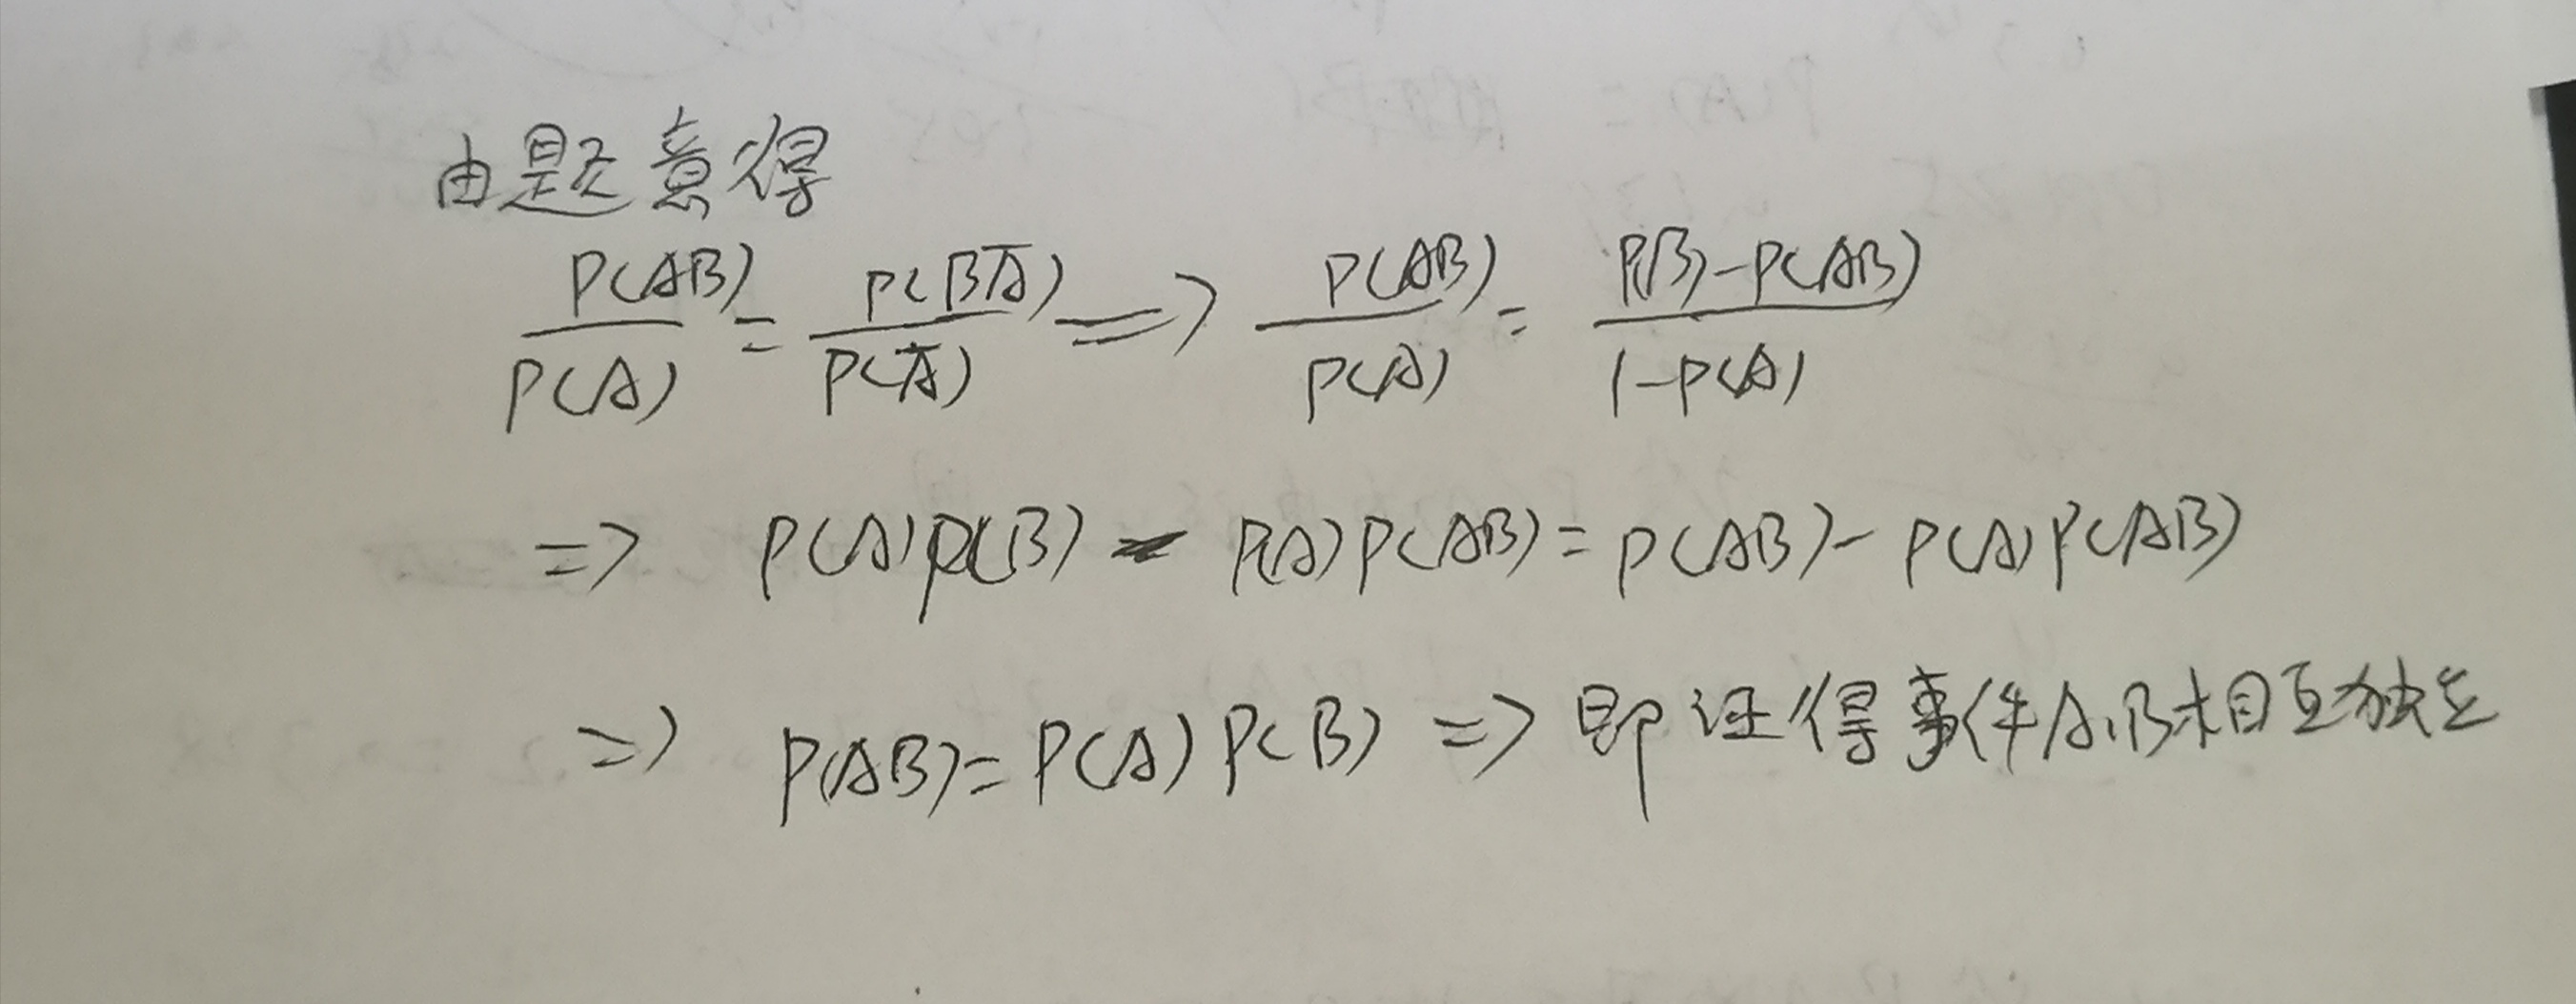 由题意得
P(AB)/P(A) = P(BA̅)/P(A̅) => P(AB)/P(A) = P(B)-P(AB)/1-P(A)
=> P(A)P(B) - P(A)P(AB) = P(AB) - P(A)P(AB)
=> P(AB) = P(A)P(B) => 即证得事件A,B相互独立